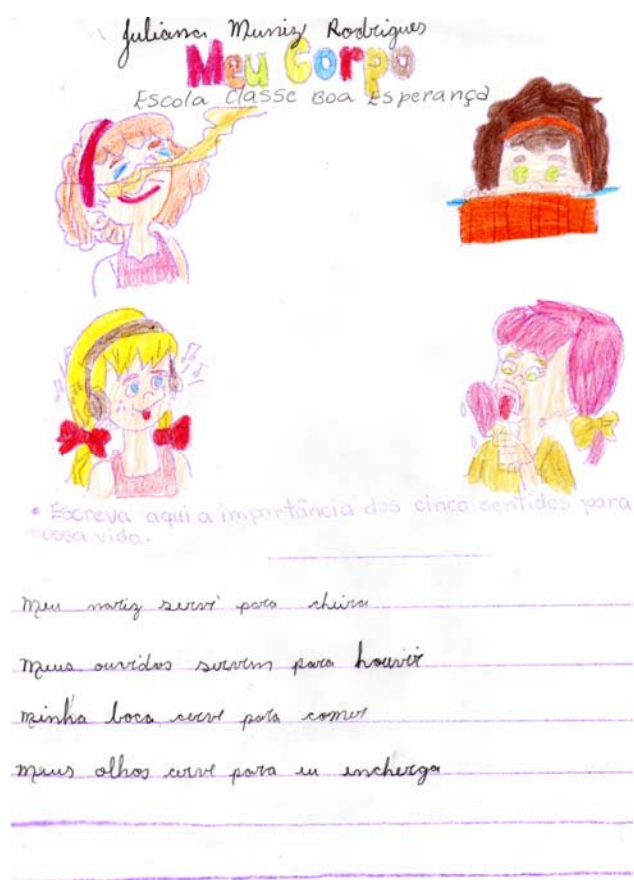 Juliana Muniz Rodrigues
Meu Corpo
Escola Classe Boa Esperança
• Escreva aqui a importância dos cinco sentidos para
nossa vida.
Meu nariz servi para cheira
Meus ouvidos servem para houvir
Minha boca cerve para comer
Meus olhos cerve para eu encherga